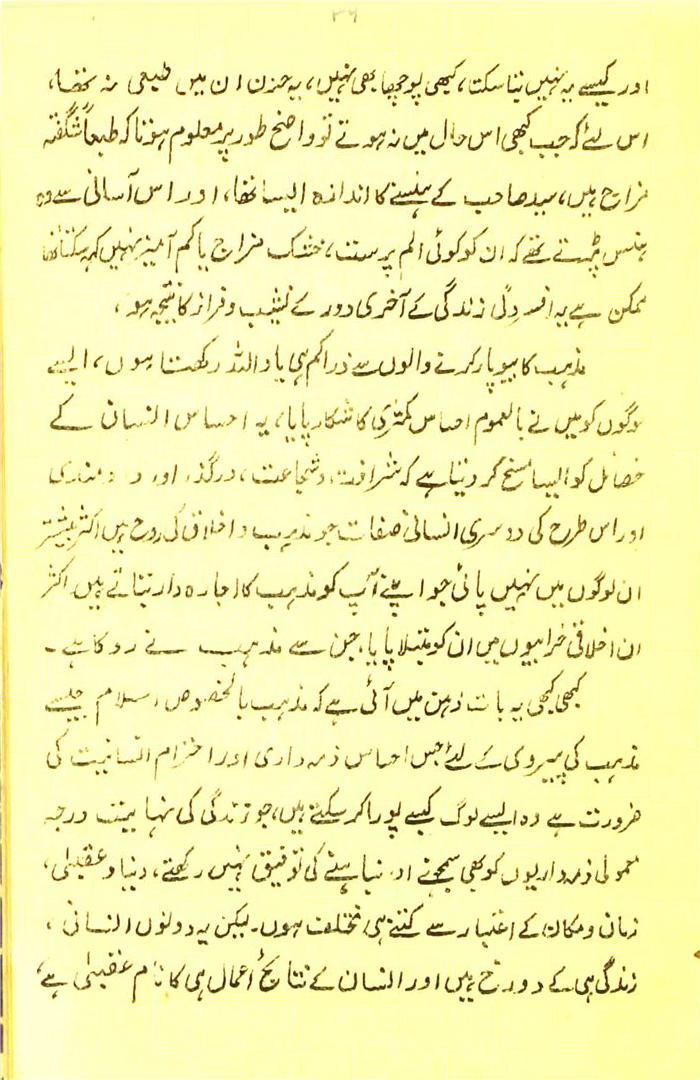 ۳۶
اور کیسے یہ نہیں بتا سکتا، کبھی پوچھا بھی نہیں، یہ حزن ان میں طبعی نہ تھا،
اس لئے کہ جب کبھی اس حال میں نہ ہوتے تو واضح طور پر معلوم ہوتا کہ طبعاً شگفتہ
مزاج ہیں، سید صاحب کے ہنسنے کا اندازہ ایسا تھا، اور اس آسانی سے وہ
ہنس پڑتے تھے کہ ان کو کوئی الم پرست، خشک مزاج یا کم آمیز نہیں کہہ سکتا تھا
ممکن ہے یہ افسردگی زندگی کے آخری دور کے نشیب و فراز کا نتیجہ ہو،
مذہب کا بیوپار کرنے والوں سے ذرا کم ہی یاد اللہ رکھتا ہوں، ایسے
لوگوں کو میں نے بالعموم احساس کمتری کا شکار پایا، یہ احساس انسان کے
خصائل کو ایسا مسخ کر دیتا ہے کہ شرافت، شجاعت، درگذر اور دردمندی
اور اس طرح کی دوسری انسانی صفات جو مذہب و اخلاق کی روح ہیں اکثر بیشتر
ان لوگوں میں نہیں پائی جو اپنے آپ کو مذہب کا اجارہ دار بتاتے ہیں اکثر
ان اخلاقی خرابیوں میں ان کو مبتلا پایا، جن سے مذہب نے روکا ہے۔
کبھی کبھی یہ بات ذہن میں آئی ہے کہ مذہب بالخصوص اسلام جیسے
مذہب کی پیروی کے لئے جس احساس ذمہ داری اور احترام انسانیت کی
ضرورت ہے وہ ایسے لوگ کیسے پورا کر سکتے ہیں، جو زندگی کی نہایت درجہ
معمولی ذمہ داریوں کو بھی سمجھنے اور نباہنے کی توفیق نہیں رکھتے، دنیا و عقبیٰ،
زمان و مکان کے اعتبار سے کتنے ہی مختلف ہوں۔ لیکن یہ دونوں انسانی،
زندگی ہی کے دو رخ ہیں اور انسان کے نتائج اعمال ہی کا نام عقبیٰ ہے،